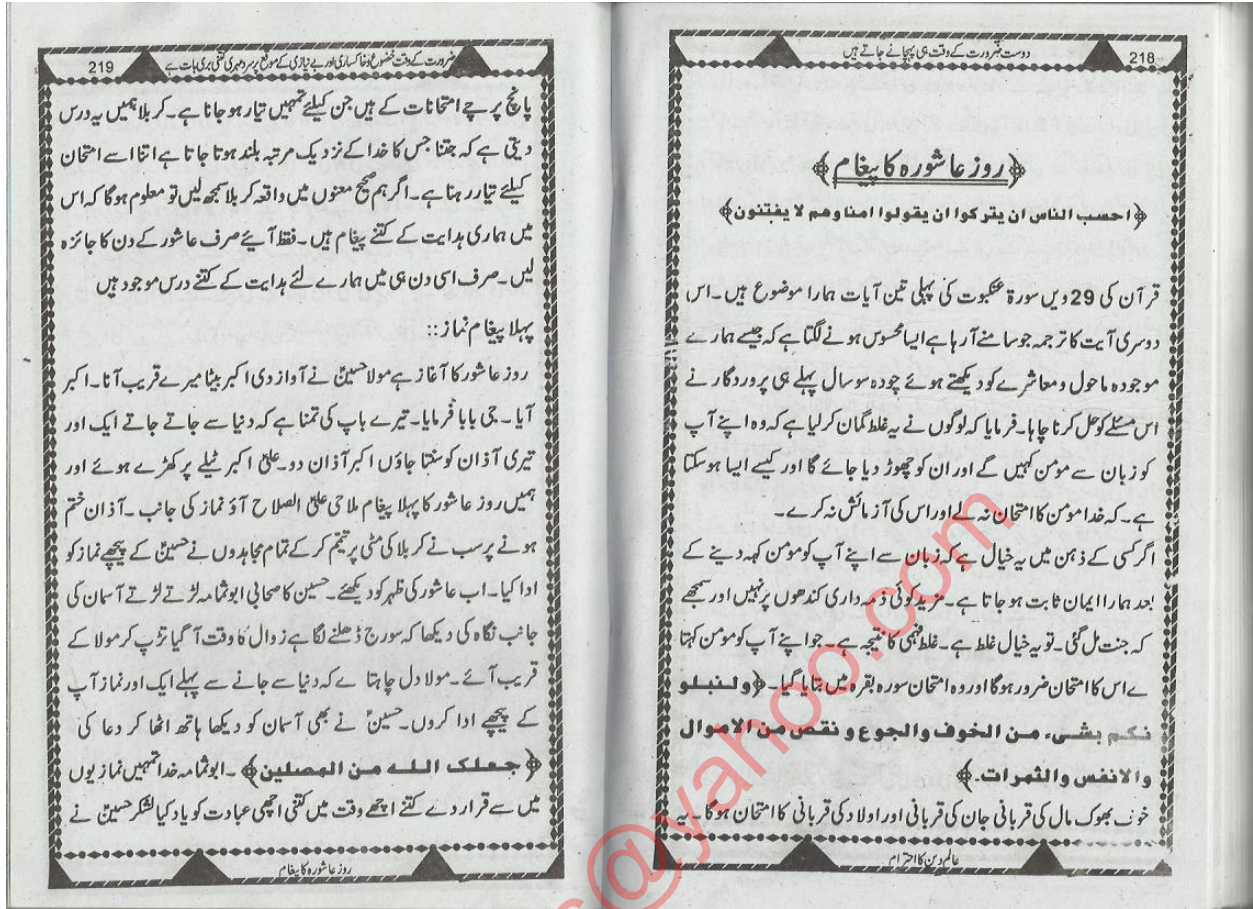 218
دوست ضرورت کے وقت ہی پہچانے جاتے ہیں
﴿روز عاشورہ کا پیغام﴾
﴿احسب الناس ان یترکوا ان یقولوا امنا وھم لا یفتنون﴾
قرآن کی 29 ویں سورۃ عنکبوت کی پہلی تین آیات ہمارا موضوع ہیں۔ اس
دوسری آیت کا ترجمہ جو سامنے آرہا ہے ایسا محسوس ہونے لگتا ہے کہ جیسے ہمارے
موجودہ ماحول و معاشرے کو دیکھتے ہوئے چودہ سو سال پہلے ہی پروردگار نے
اس مسئلے کو حل کرنا چاہا۔ فرمایا کہ لوگوں نے یہ غلط گمان کر لیا ہے کہ وہ اپنے آپ
کو زبان سے مومن کہیں گے اور ان کو چھوڑ دیا جائے گا اور کیسے ایسا ہوسکتا
ہے۔ کہ خدا مومن کا امتحان نہ لے اور اس کی آزمائش نہ کرے۔
اگر کسی کے ذہن میں یہ خیال ہے کہ زبان سے اپنے آپ کو مومن کہہ دینے کے
بعد ہمارا ایمان ثابت ہو جاتا ہے۔ مزید کوئی ذمہ داری کندھوں پر نہیں اور سمجھے
کہ جنت مل گئی۔ تو یہ خیال غلط ہے۔ غلط فہمی کا نتیجہ ہے۔ جو اپنے آپ کو مومن کہتا
ے اس کا امتحان ضرور ہوگا اور وہ امتحان سورہ بقرہ میں بتایا گیا۔ ﴿ولنبلو
نکم بشیء من الخوف والجوع و نقص من الاموال
والانفس والثمرات۔﴾
خوف بھوک مال کی قربانی جان کی قربانی اور اولاد کی قربانی کا امتحان ہوگا۔ یہ
عالم دین کا احترام
219
ضرورت کے وقت خضوع و خاکساری اور بے نیازی کے موقع پر سرد مہری کتنی بری بات ہے
پانچ پرچے امتحانات کے ہیں جن کیلئے تمہیں تیار ہو جانا ہے۔ کربلا ہمیں یہ درس
دیتی ہے کہ جتنا جس کا خدا کے نزدیک مرتبہ بلند ہوتا جاتا ہے اتنا اسے امتحان
کیلئے تیار رہنا ہے۔ اگر ہم صحیح معنوں میں واقعہ کربلا سمجھ لیں تو معلوم ہوگا کہ اس
میں ہماری ہدایت کے کتنے پیغام ہیں۔ فقط آیئے صرف عاشور کے دن کا جائزہ
لیں۔ صرف اسی دن ہی میں ہمارے لئے ہدایت کے کتنے درس موجود ہیں
پہلا پیغام نماز::
روز عاشور کا آغاز ہے مولا حسینؑ نے آواز دی اکبر بیٹا میرے قریب آنا۔ اکبر
آیا۔ جی بابا فرمایا۔ تیرے باپ کی تمنا ہے کہ دنیا سے جاتے جاتے ایک اور
تیری آذان کو سنتا جاؤں اکبر آذان دو۔ علیؑ اکبر ٹیلے پر کھڑے ہوئے اور
ہمیں روز عاشور کا پہلا پیغام ملا حی علیٰ الصلاح آؤ نماز کی جانب۔ آذان ختم
ہونے پر سب نے کربلا کی مٹی پر تیمم کر کے تمام مجاہدوں نے حسینؑ کے پیچھے نماز کو
ادا کیا۔ اب عاشور کی ظہر کو دیکھئے۔ حسین کا صحابی ابوثمامہ لڑتے لڑتے آسمان کی
جانب نگاہ کی دیکھا کہ سورج ڈھلنے لگا ہے زوال کا وقت آگیا تڑپ کر مولا کے
قریب آئے۔ مولا دل چاہتا ے کہ دنیا سے جانے سے پہلے ایک اور نماز آپ
کے پیچھے ادا کروں۔ حسینؑ نے بھی آسمان کو دیکھا ہاتھ اٹھا کر دعا کی
﴿جعلک اللہ من المصلین﴾۔ ابوثمامہ خدا تمہیں نمازیوں
میں سے قرار دے کتنے اچھے وقت میں کتنی اچھی عبادت کو یاد کیا لشکر حسینؑ نے
روز عاشورہ کا پیغام
s@yahoo.com